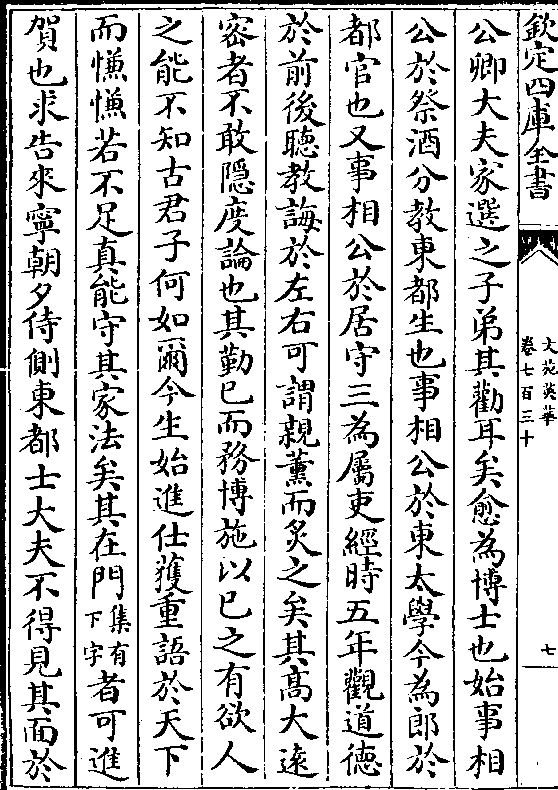 欽定四庫全書
文苑英華
卷七百三十
七
公卿大夫家選之子弟其勸耳矣愈為博士也始事相
公於祭酒分教東都生也事相公於東太學今為郎於
都官也又事相公於居守三為屬吏經時五年觀道德
於前後聽教誨於左右可謂親薰而炙之矣其髙大遠
宻者不敢隠度論也其勤已而務博施以已之有欲人
之能不知古君子何如爾今生始進仕獲重語於天下
而慊慊若不足真能守其家法矣其在門集有下字者可進
賀也求告來寧朝夕侍側東都士大夫不得見其面於